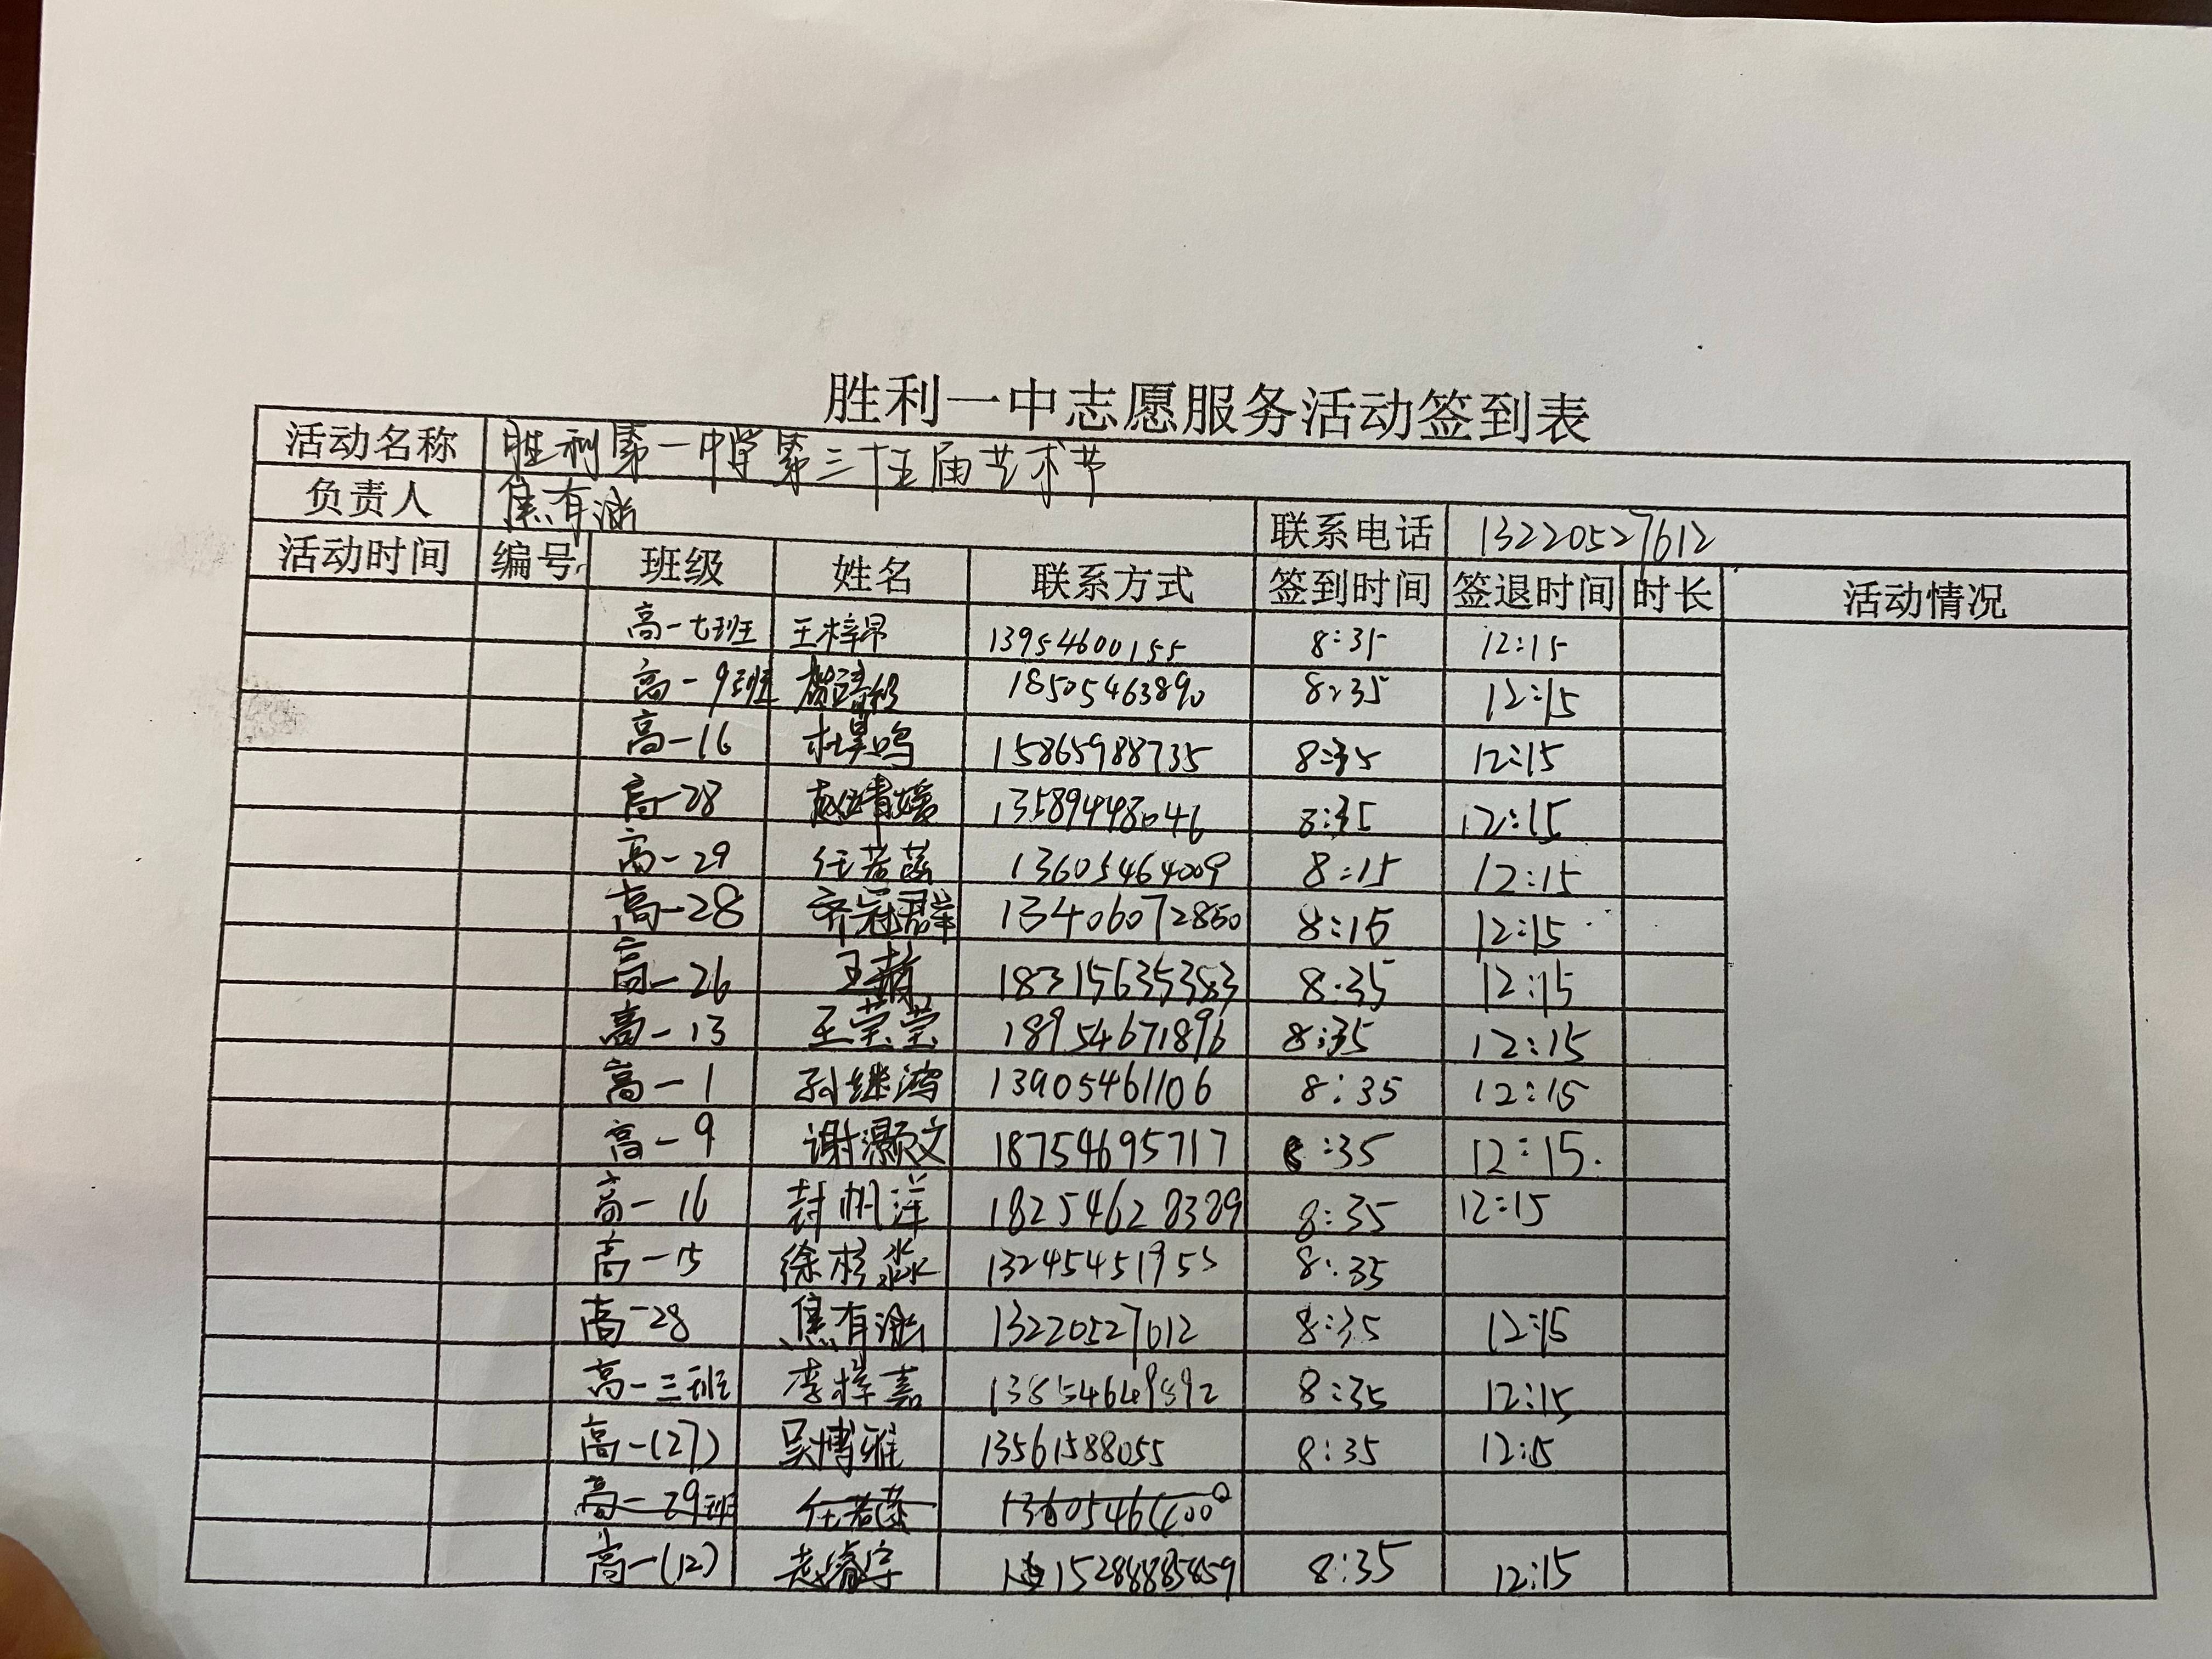 胜利一中志愿服务活动签到表
活动名称 胜利第一中学第三十五届艺术节
负责人 焦有涵 联系电话 13220527612
活动时间 编号 班级 姓名 联系方式 签到时间 签退时间 时长 活动情况
高一七班 王梓昂 13954600155 8:35 12:15
高一9班 18505463890 8:35 12:15
高一16 杜昊鸣 15865988735 8:35 12:15
高一28 赵婧媛 13589448046 8:35 12:15
高一29 任若菡 13605464009 8:15 12:15
高一28 齐冠群 13406072850 8:15 12:15
高一26 王赫 18315635383 8:35 12:15
高一13 王莹莹 18954671896 8:35 12:15
高一1 孙继鸿 13905461106 8:35 12:15
高一9 谢灏文 18754695717 8:35 12:15.
高一16 封帆洋 18254628389 8:35 12:15
高一15 徐杉淼 13245451955 8:35
高一28 焦有涵 13220527612 8:35 12:15
高一三班 李梓嘉 13854649892 8:35 12:15
高一(27) 吴博雅 13561588055 8:35 12:15
高一29班 任若菡
高一(12) 赵睿宇 8:35 12:15